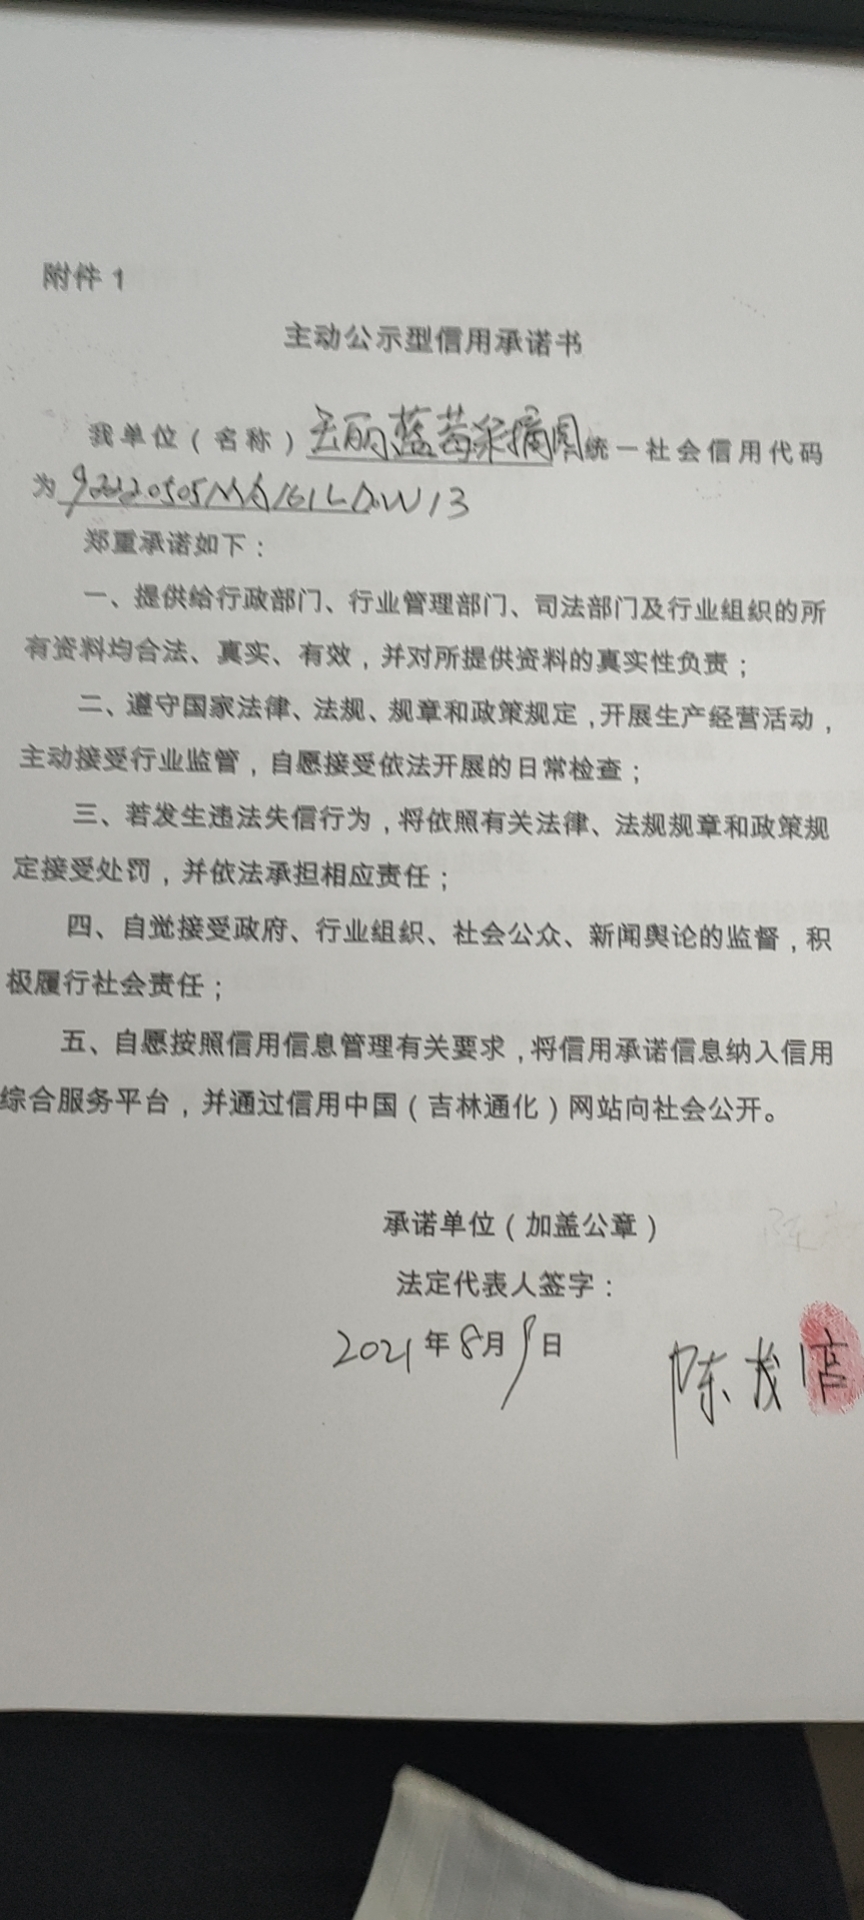 附件 1
主动公示型信用承诺书
我单位（名称）玉丽蓝莓采摘园统一社会信用代码
为92220505MA161LDW13
郑重承诺如下：
一、提供给行政部门、行业管理部门、司法部门及行业组织的所
有资料均合法、真实、有效，并对所提供资料的真实性负责；
二、遵守国家法律、法规、规章和政策规定，开展生产经营活动，
主动接受行业监管，自愿接受依法开展的日常检查；
三、若发生违法失信行为，将依照有关法律、法规规章和政策规
定接受处罚，并依法承担相应责任；
四、自觉接受政府、行业组织、社会公众、新闻舆论的监督，积
极履行社会责任；
五、自愿按照信用信息管理有关要求，将信用承诺信息纳入信用
综合服务平台，并通过信用中国（吉林通化）网站向社会公开。
承诺单位（加盖公章）
法定代表人签字：
2021年8月9日
陈茂信